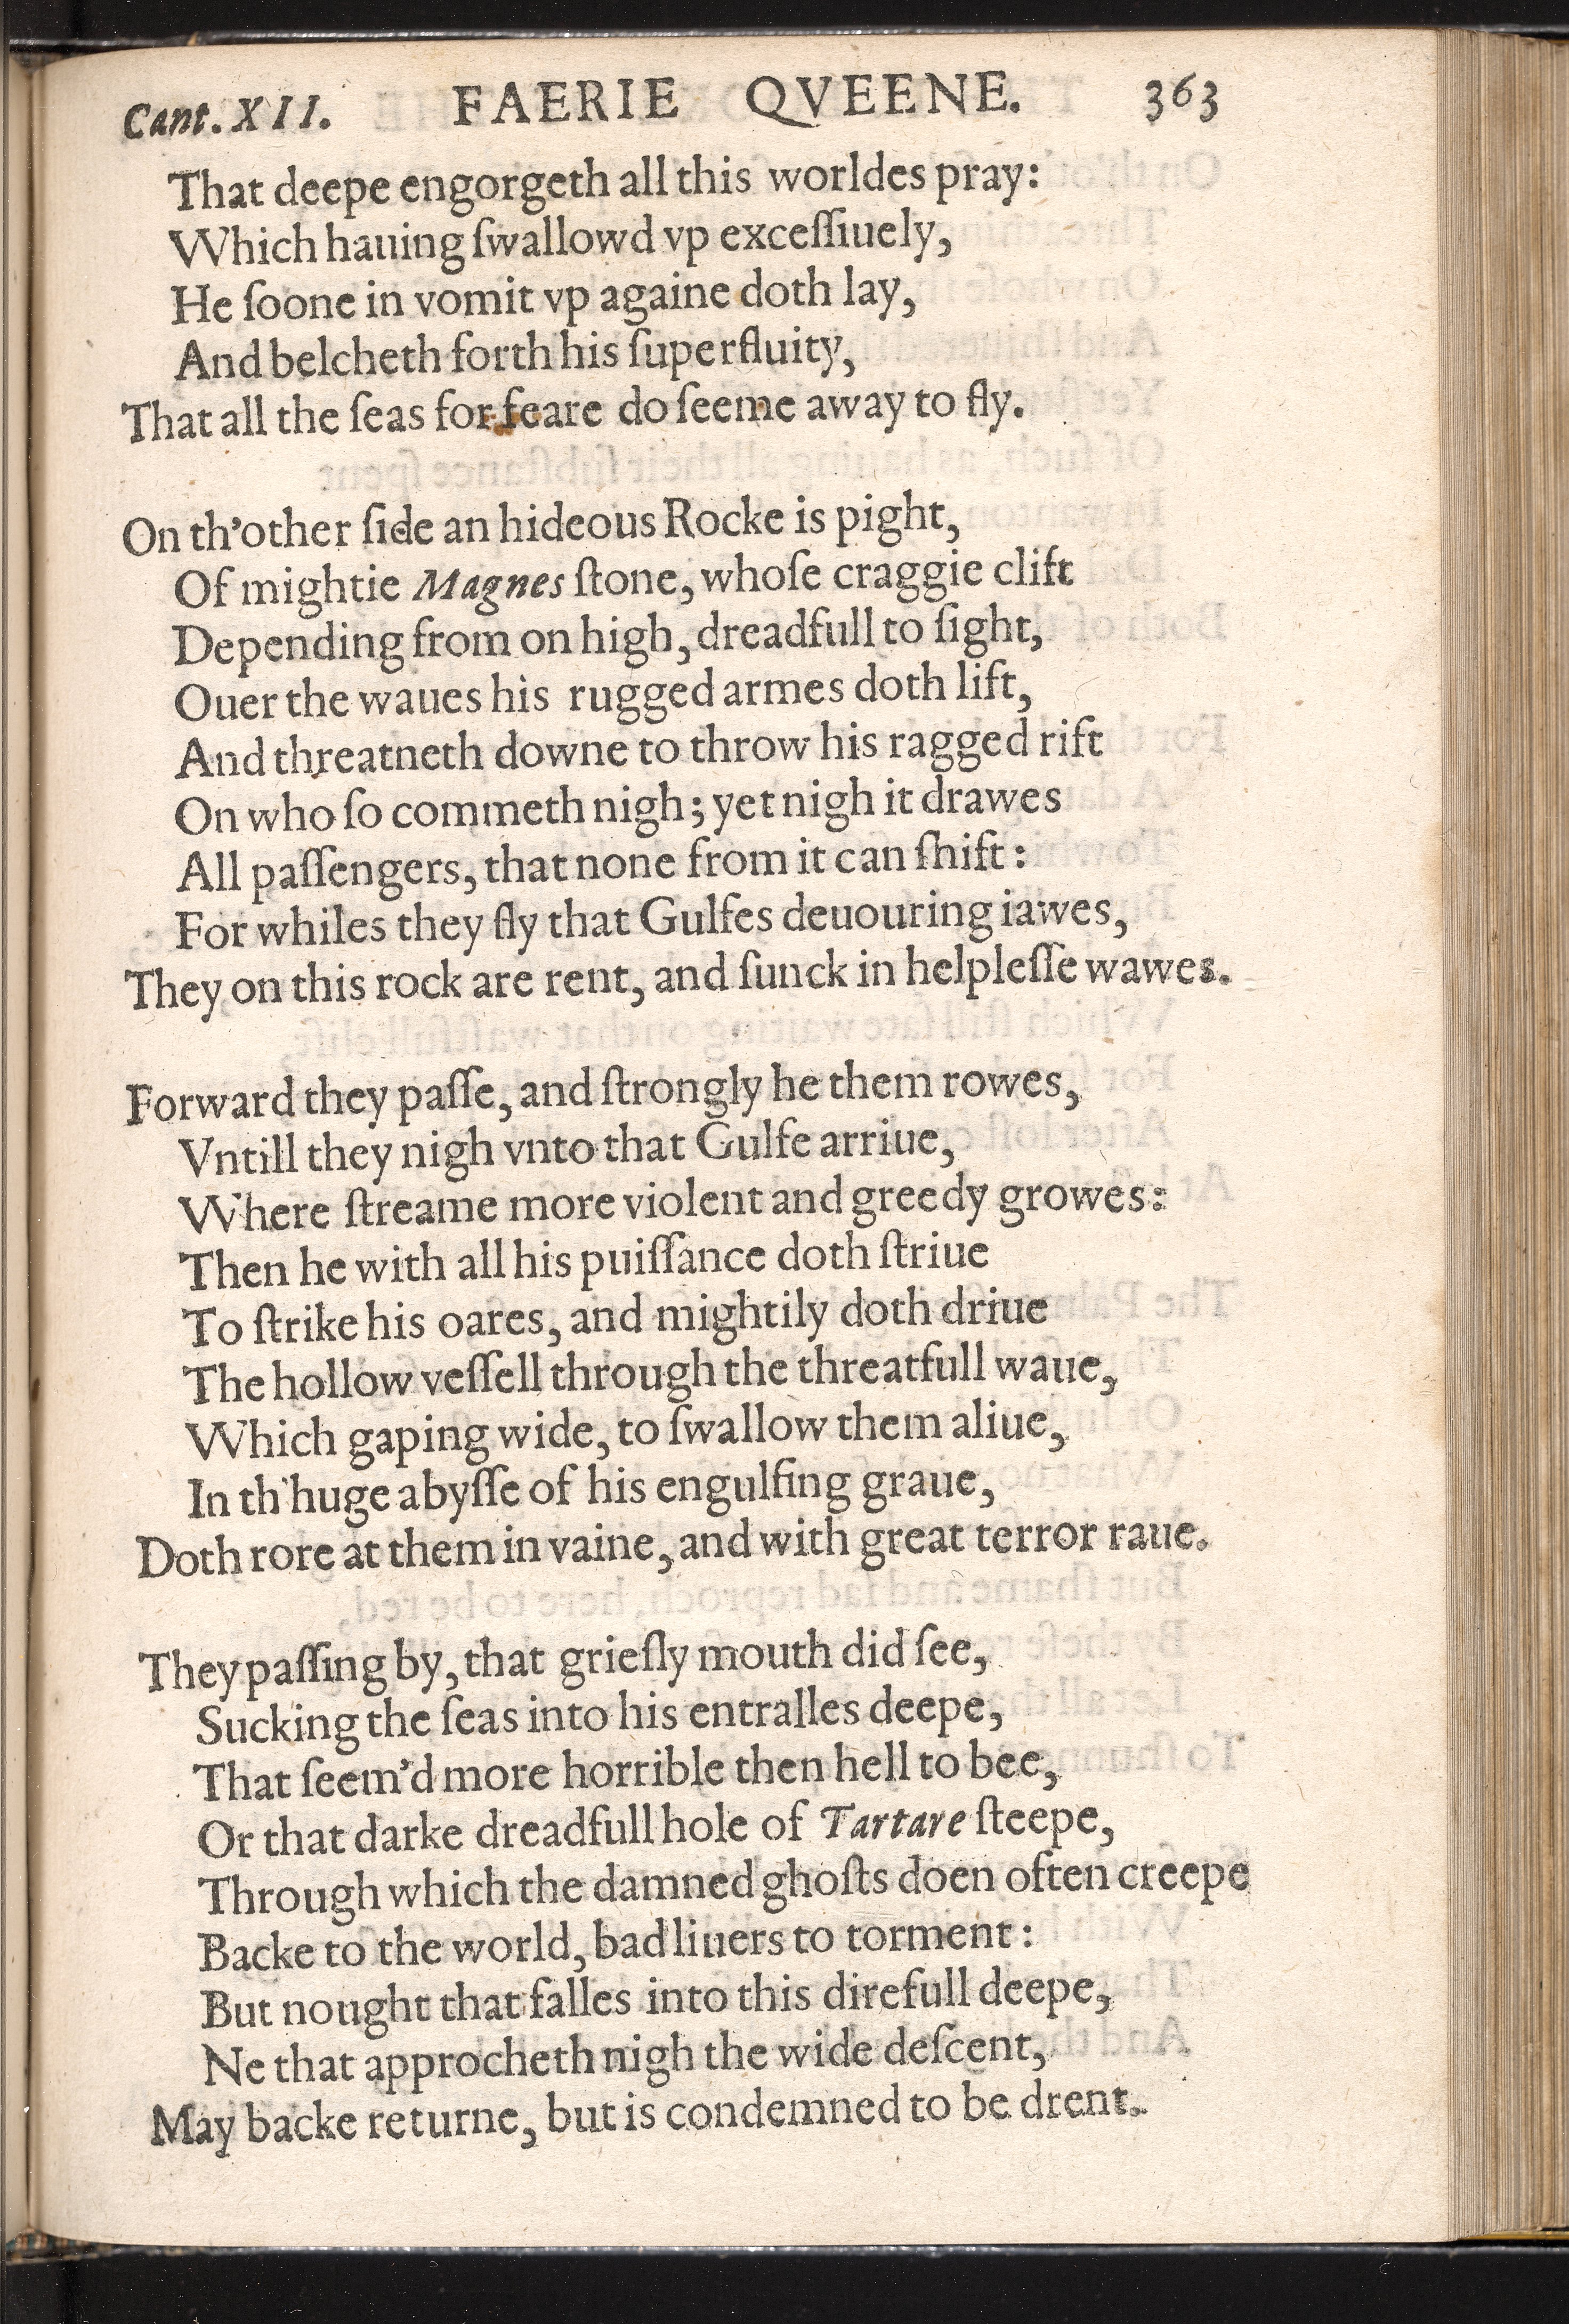 Cant. XII. FAERIE QVEENE. 363
That deepe engorgeth all this worldes pray:
Which hauing ſwallowd vp exceſſiuely,
He ſoone in vomit vp againe doth lay,
And belcheth forth his ſuperfluity,
That all the ſeas for feare do ſeeme away to fly.
On th'other ſide an hideous Rocke is pight,
Of mightie Magnes ſtone, whoſe craggie clift
Depending from on high, dreadfull to ſight,
Ouer the waues his rugged armes doth lift,
And threatneth downe to throw his ragged rift
On who ſo commeth nigh; yet nigh it drawes
All paſſengers, that none from it can ſhift:
For whiles they fly that Gulfes deuouring iawes,
They on this rock are rent, and ſunck in helpleſſe wawes.
Forward they paſſe, and ſtrongly he them rowes,
Vntill they nigh vnto that Gulfe arriue,
Where ſtreame more violent and greedy growes:
Then he with all his puiſſance doth ſtriue
To ſtrike his oares, and mightily doth driue
The hollow veſſell through the threatfull waue,
Which gaping wide, to ſwallow them aliue,
In th'huge abyſſe of his engulfing graue,
Doth rore at them in vaine, and with great terror raue.
They paſſing by, that grieſly mouth did ſee,
Sucking the ſeas into his entralles deepe,
That ſeem'd more horrible then hell to bee,
Or that darke dreadfull hole of Tartare ſteepe,
Through which the damned ghoſts doen often creepe
Backe to the world, bad liuers to torment:
But nought that falles into this direfull deepe,
Ne that approcheth nigh the wide deſcent,
May backe returne, but is condemned to be drent.